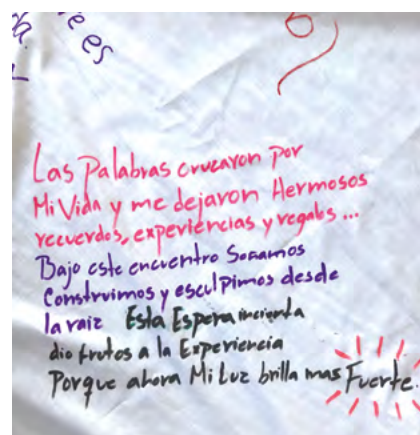 e es
Las Palabras cruzaron por
Mi Vida y me dejaron Hermosos
recuerdos, experiencias y regalos ...
Bajo este encuentro Soñamos
Construimos y esculpimos desde
la raiz Esta Espera incierta
dio frutos a la Experiencia
Porque ahora Mi Luz brilla mas Fuerte.